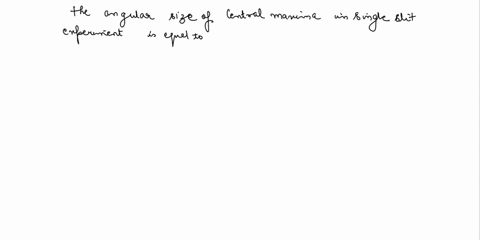 the angular size of central maxima in single slit
experiment is equal to